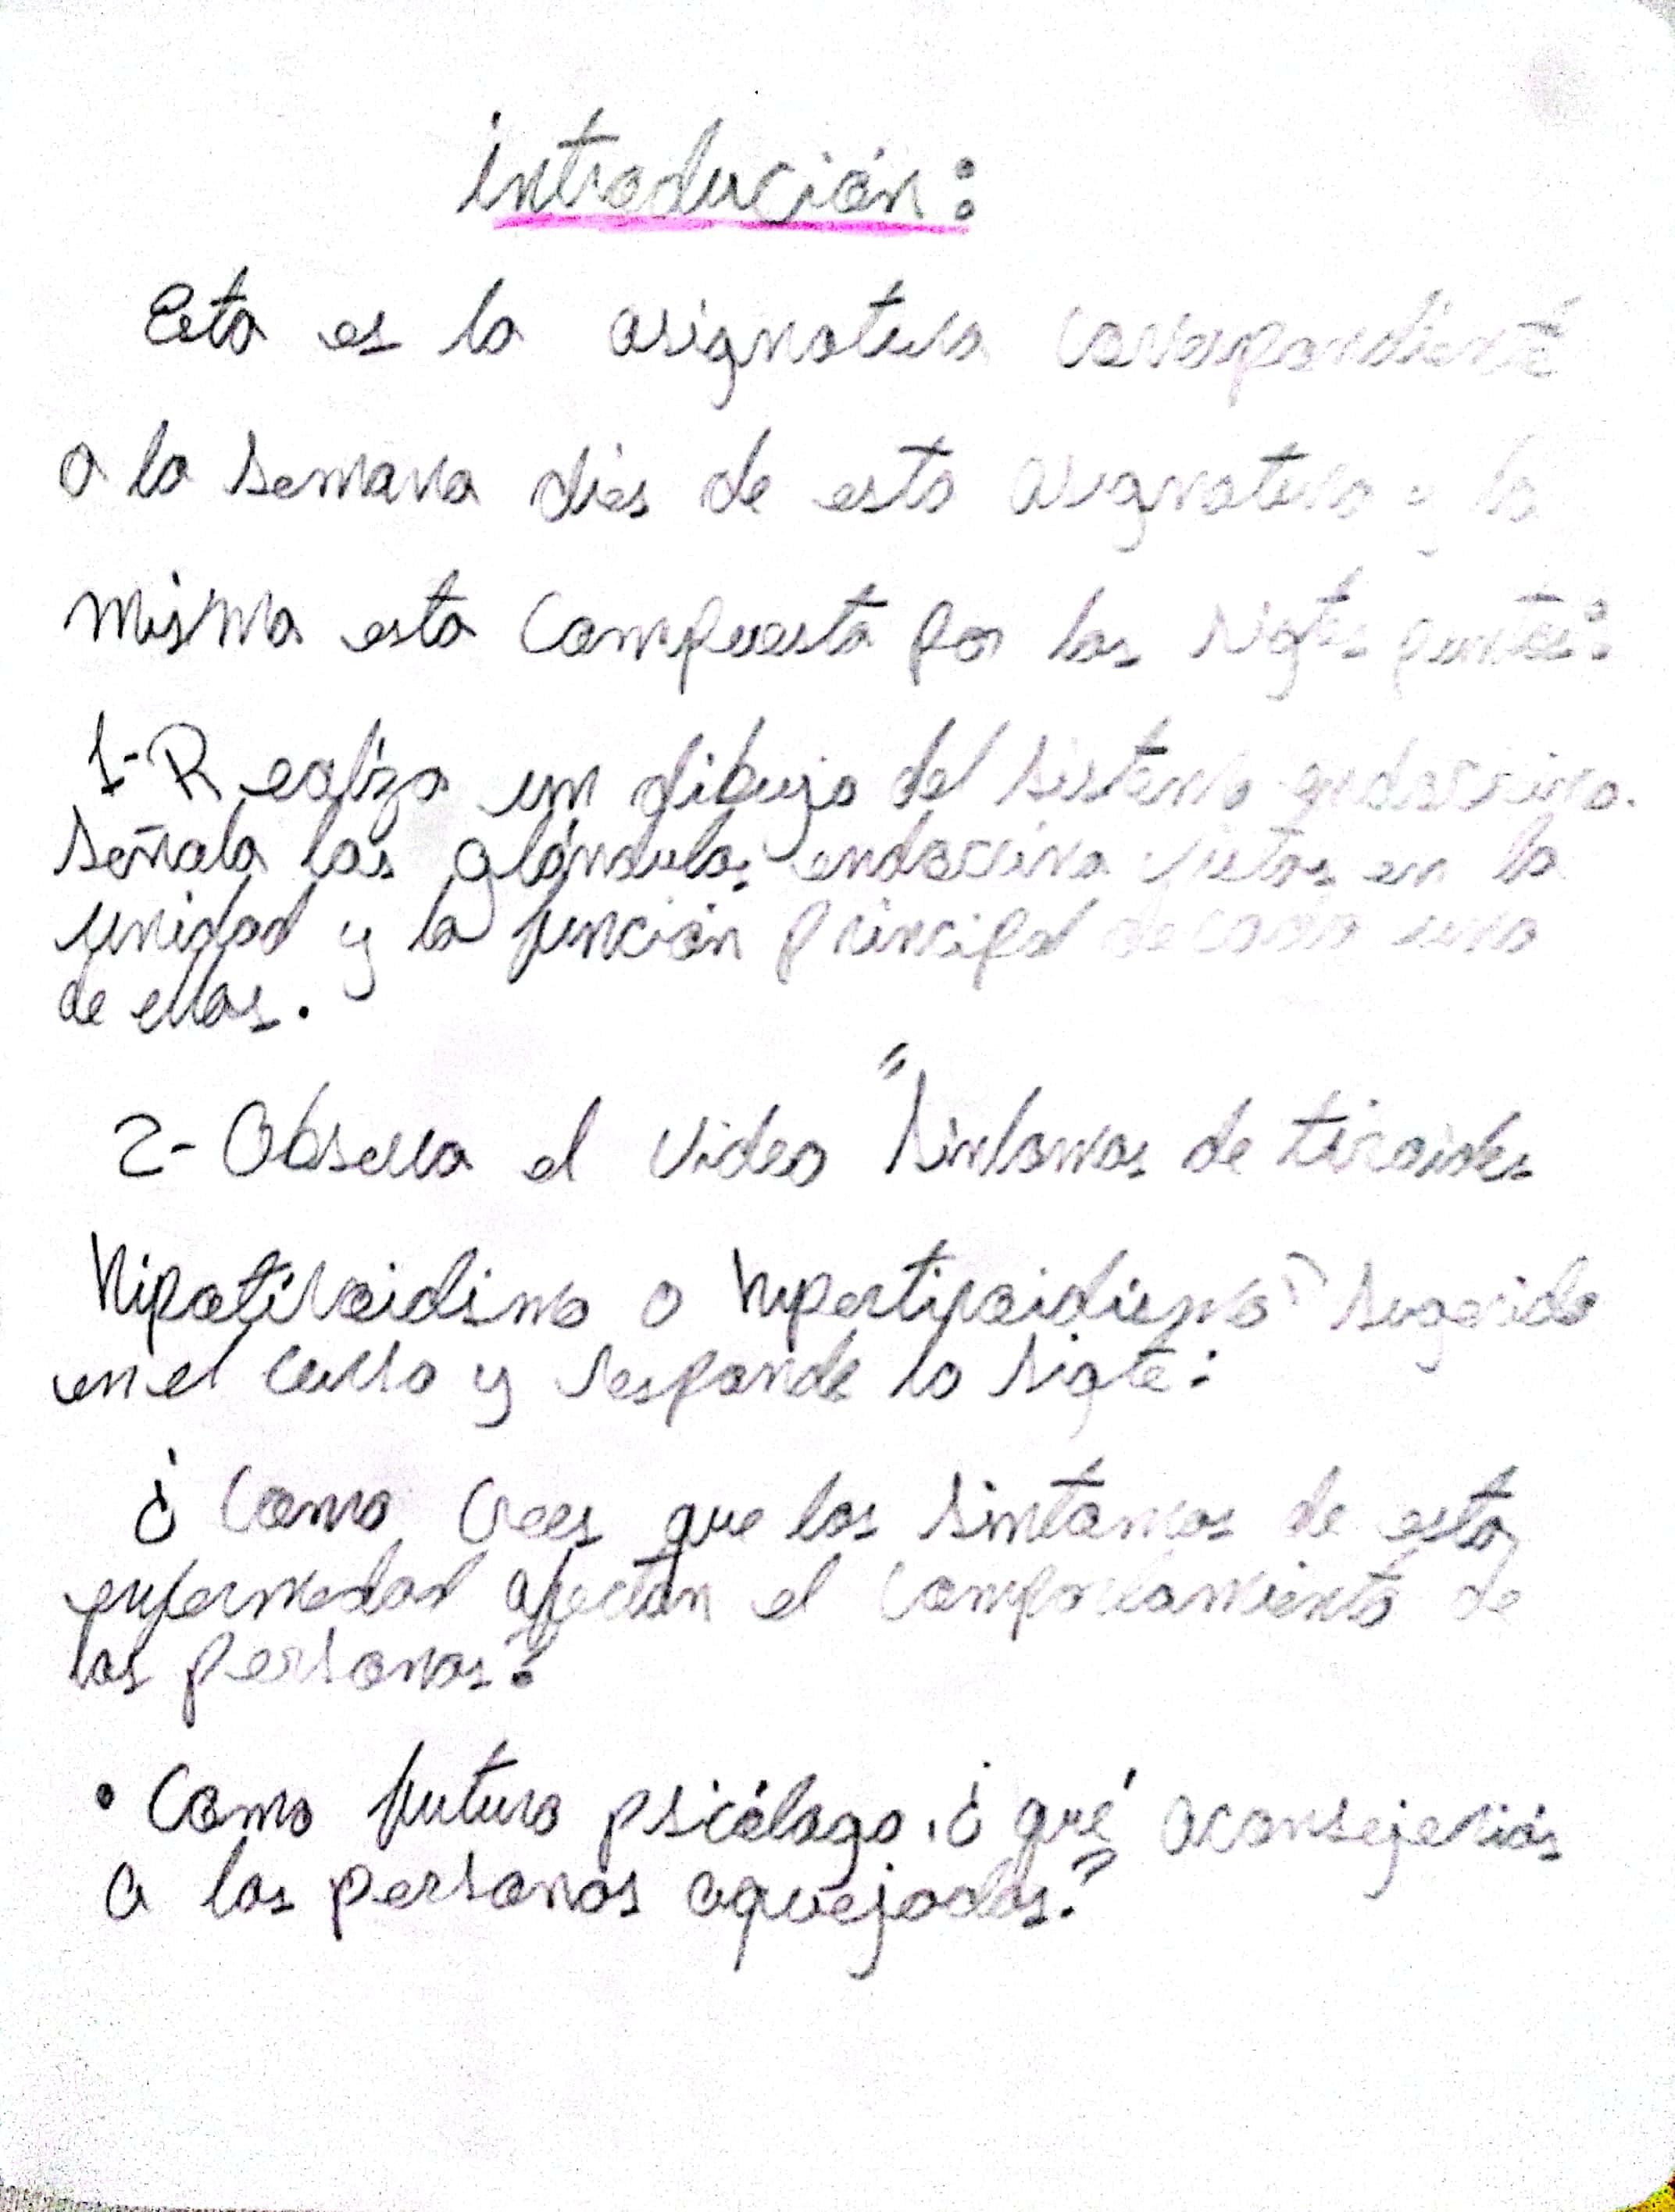 introdución:
Esta es la asignatura correspondiente
a la semana dies de esta asignatura y la
misma esta compuesta por los sigtes puntos:
1-Realiza un dibujo del sistema endocrino.
señala las glándulas endocrina vistas en la
unidad y la función principal de cada una
de ellas.
2- Observa el video "Sintomas de tiroides
hipotiroidismo o hipertiroidismo" sugerido
en el curso y responde lo sigte:
¿Como crees que los sintomas de esta
enfermedad afectan el comportamiento de
las personas?
• Como futuro psicólogo, ¿qué aconsejerias
a las personas aquejadas?